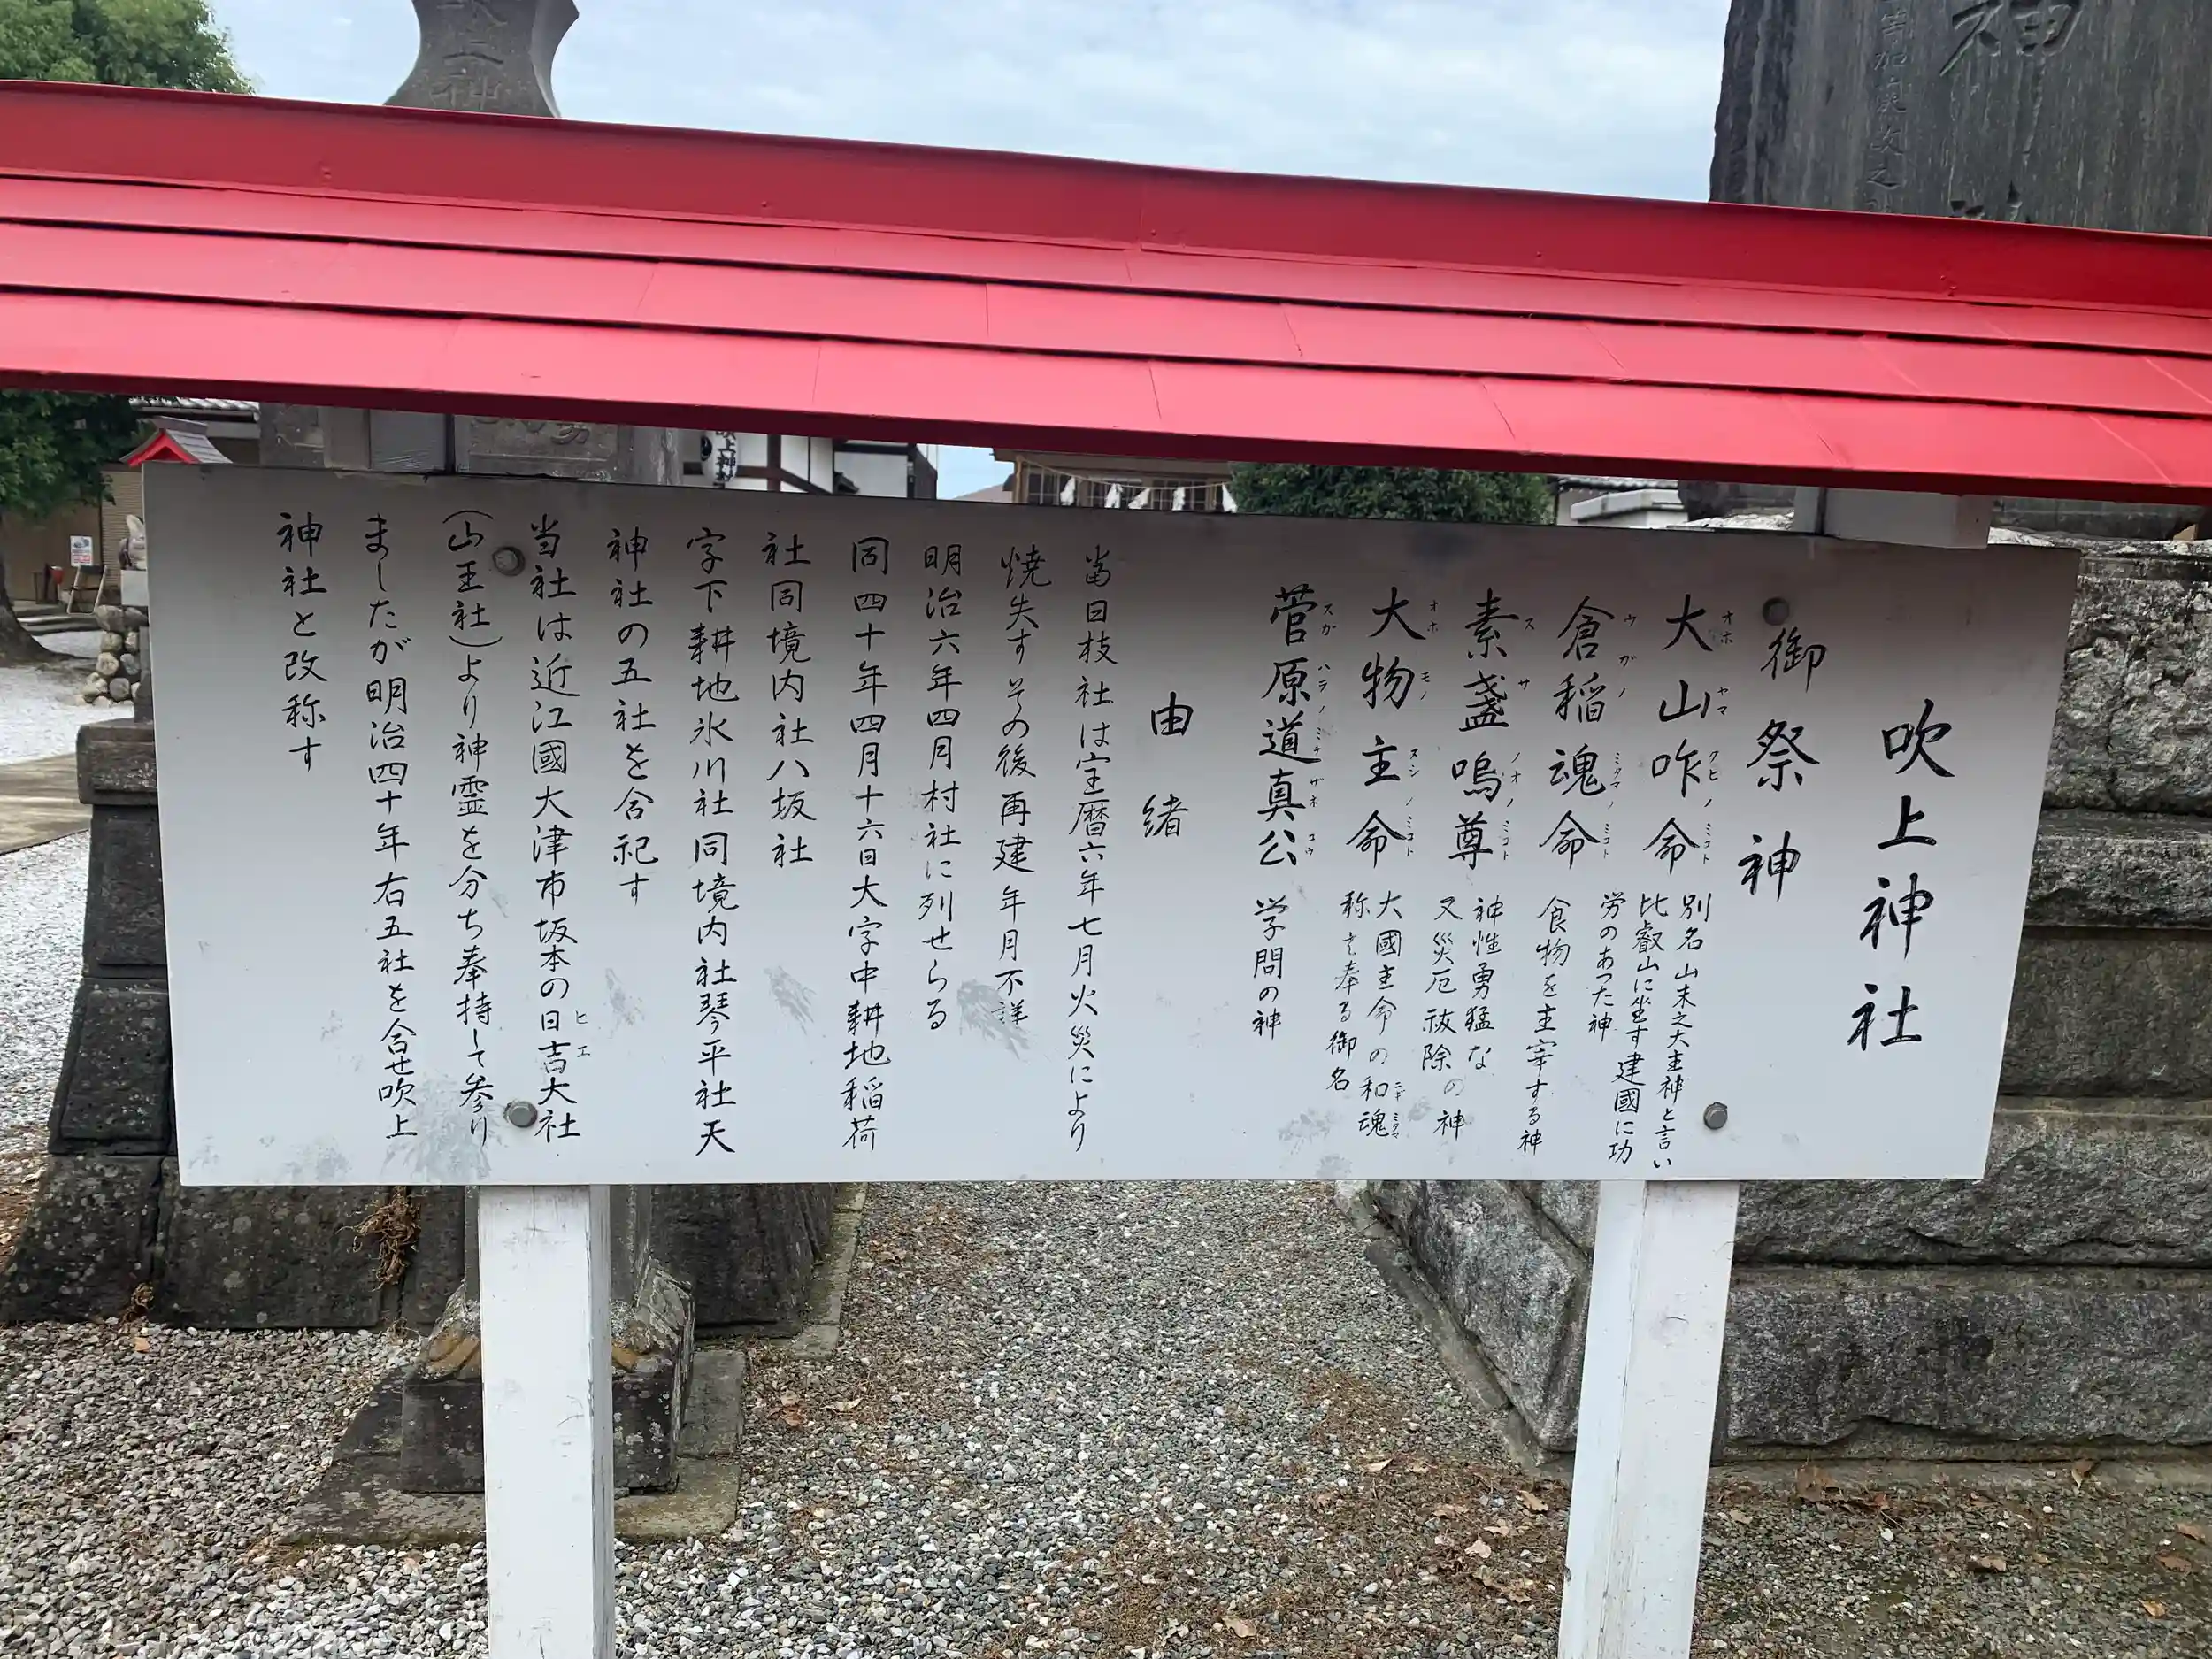 吹上神社
御祭神
大山咋命 別名山末之大主神と言い
比叡山に坐す建國に功
労のあつた神
倉稲魂命 食物を主宰する神
素盞嗚尊 神性勇猛な
又災厄祓除の神
大物主命 大國主命の和魂
称え奉る御名
菅原道真公 学問の神
由緒
当日枝社は宝暦六年七月火災により
焼失すその後再建年月不詳
明治六年四月村社に列せらる
同四十年四月十六日大字中耕地稲荷
社同境内社八坂社
字下耕地氷川社同境内社琴平社天
神社の五社を合祀す
当社は近江國大津市坂本の日吉大社
(山王社)より神霊を分ち奉持して参り
ましたが明治四十年右五社を合せ吹上
神社と改称す